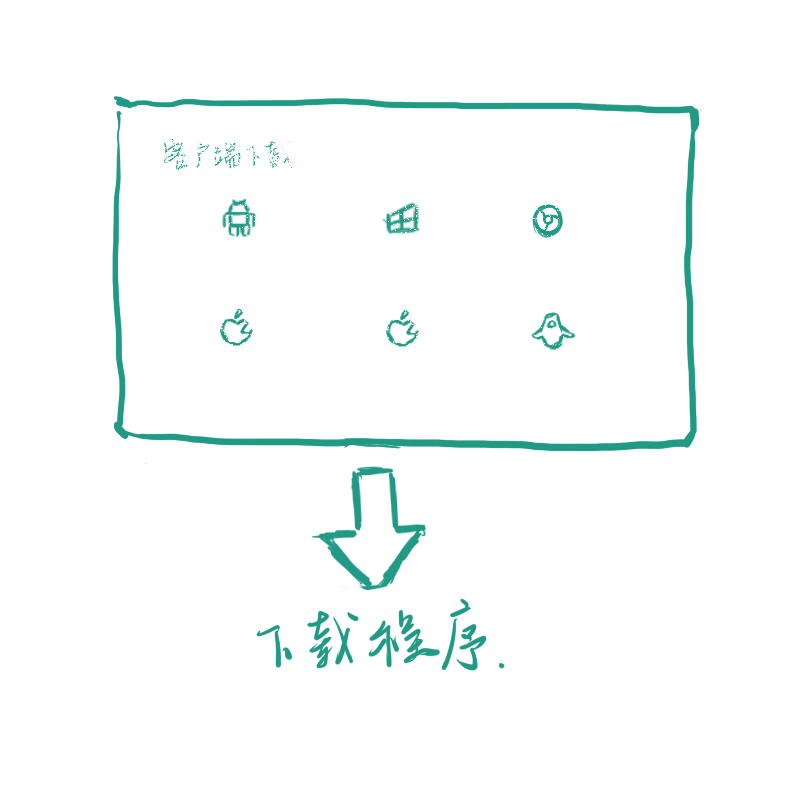 客户端下载
下载程序.